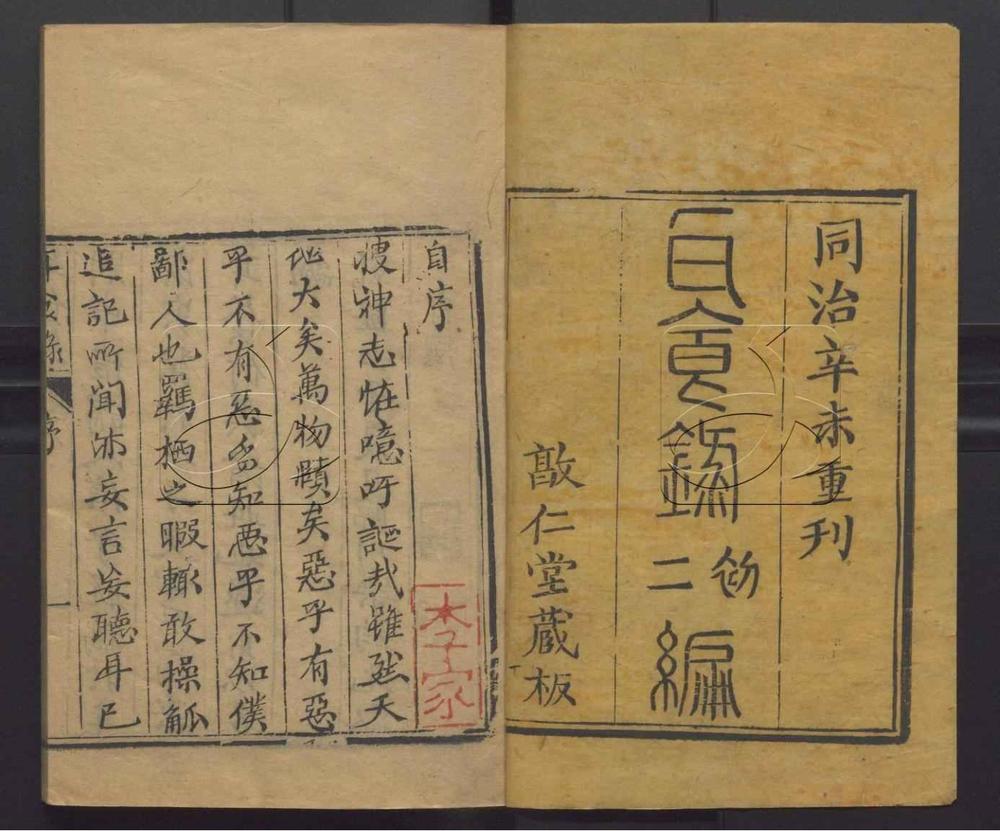 同治辛未重刊
耳食錄初二編
敦仁堂藏板
自序
李家
搜神志恠噫吁誕㦲雖然天
地大矣萬物賾矣惡乎有惡
乎不有惡乎知惡乎不知僕
鄙人也羈栖之暇輙敢操觚
追記所聞亦妄言妄聽耳已
耳食錄 序 一